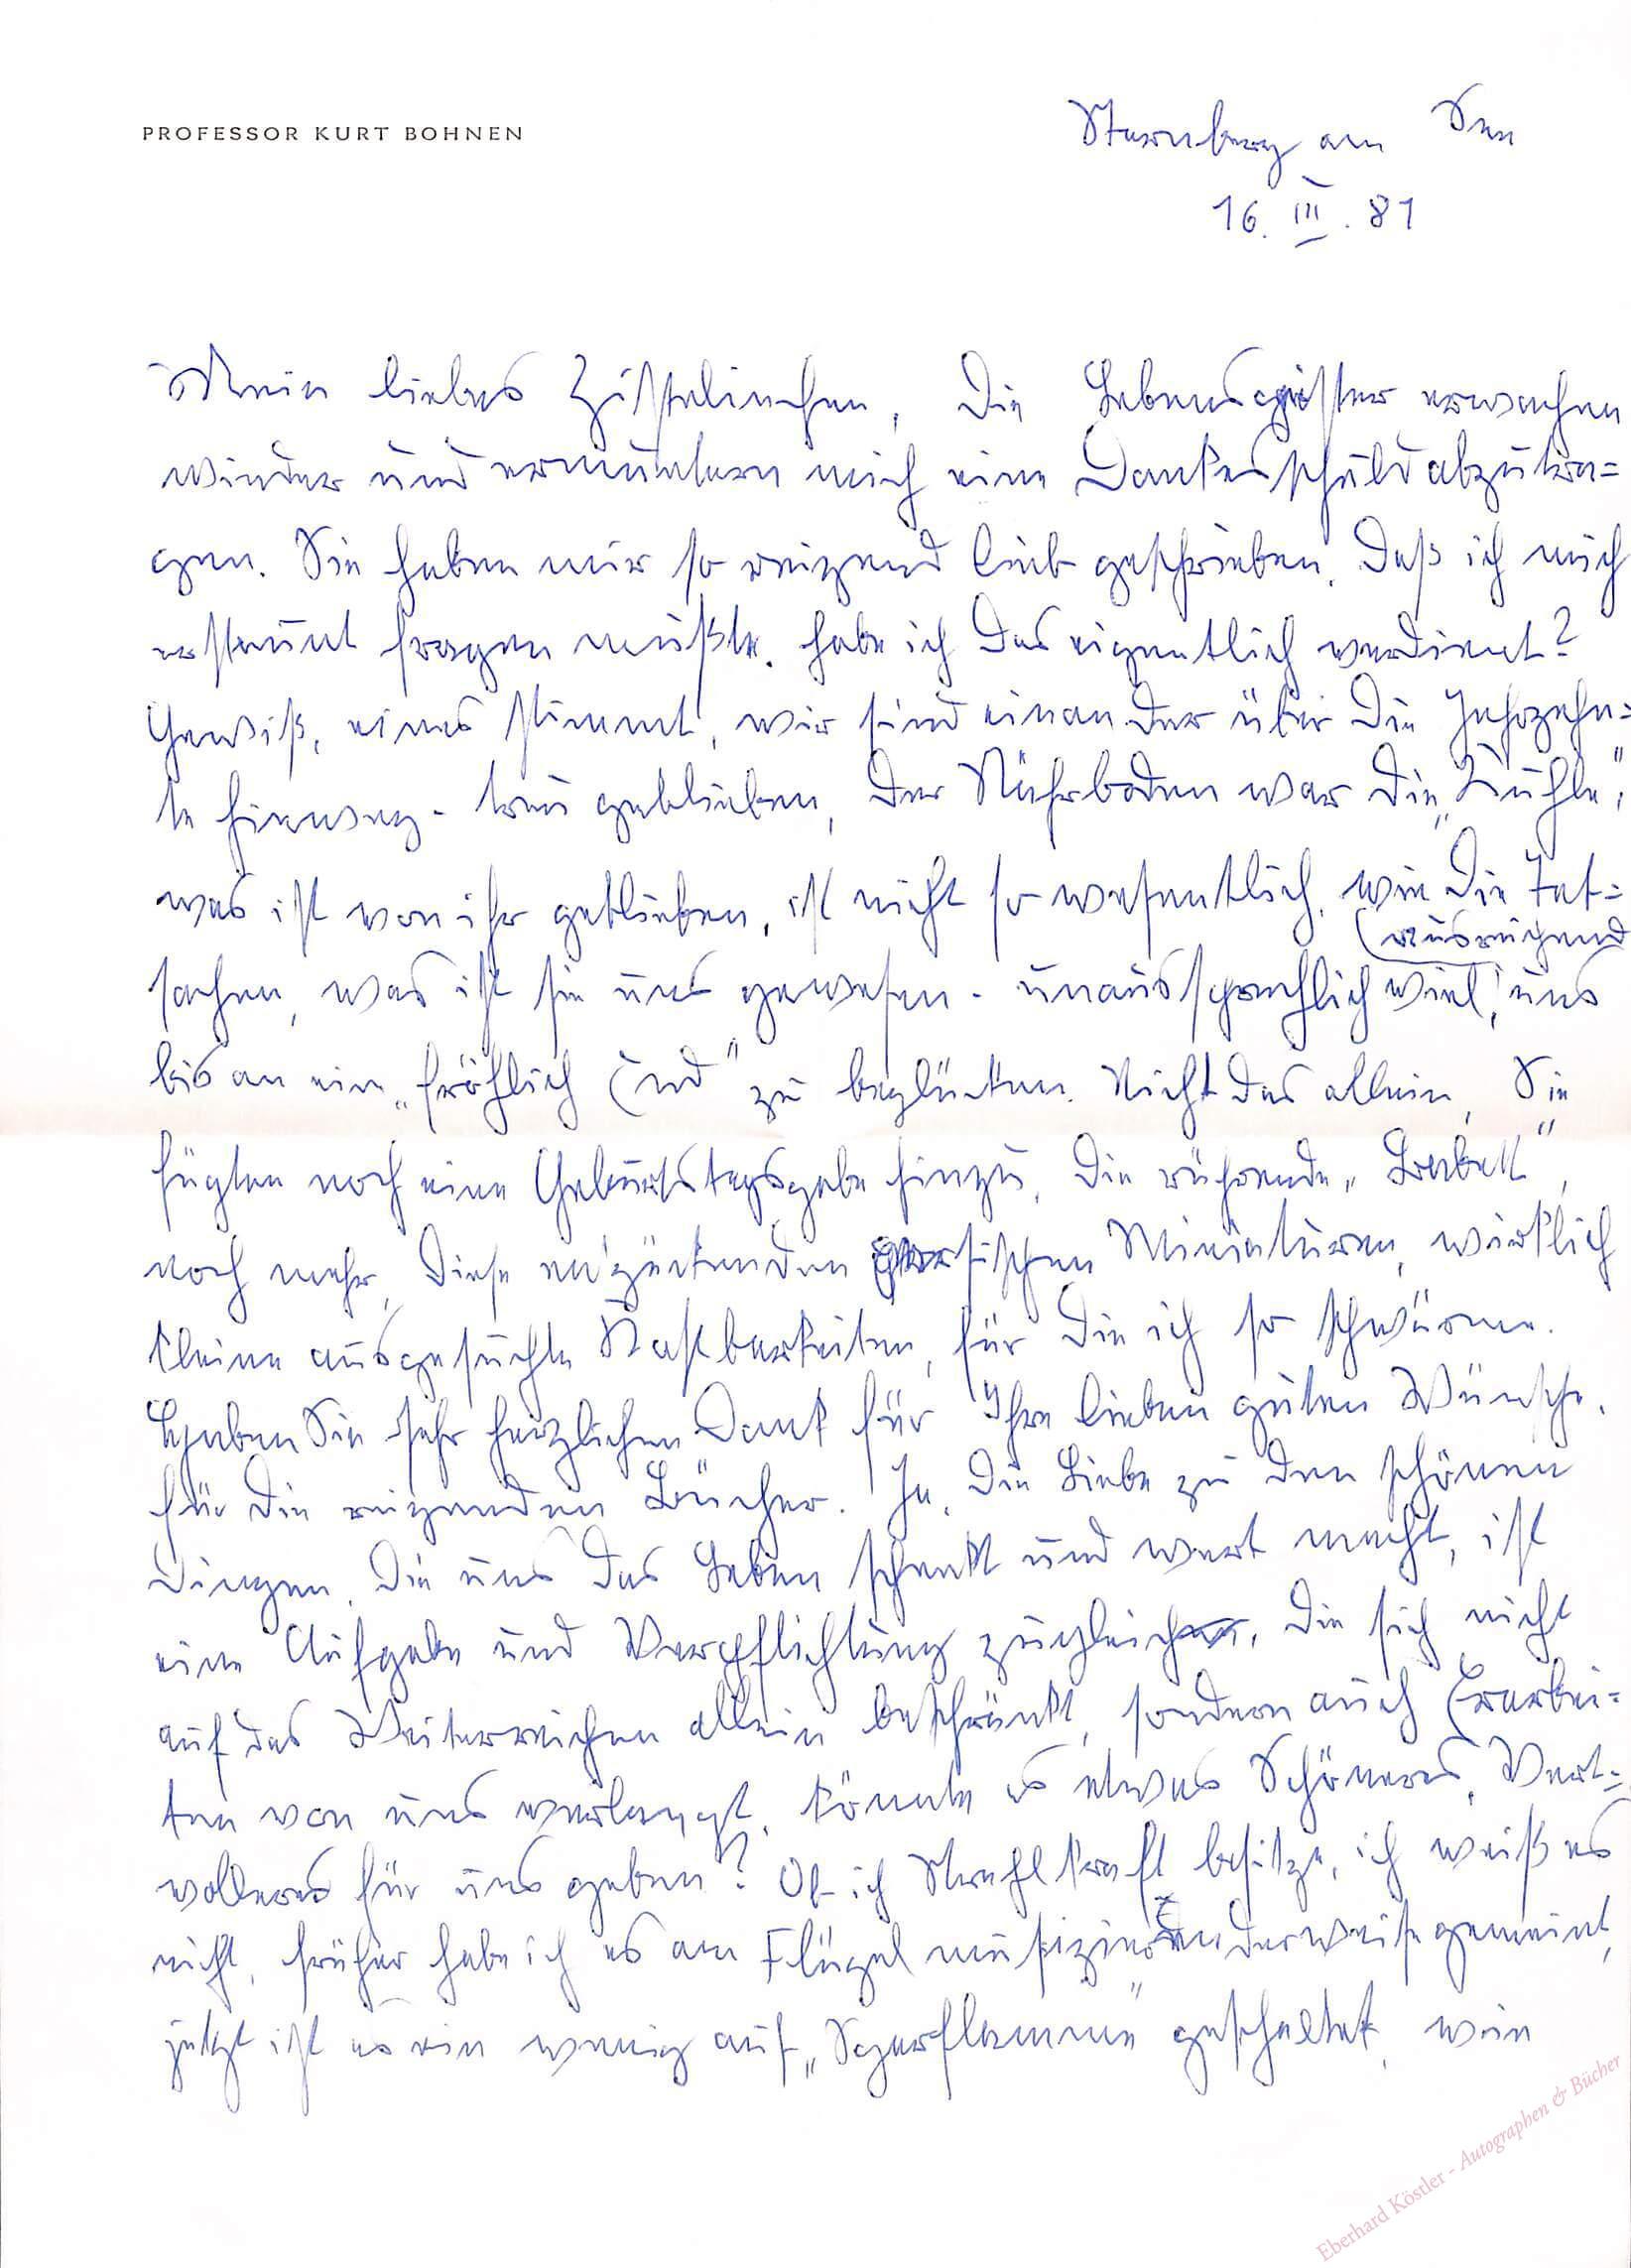 PROFESSOR KURT BOHNEN
Starnberg am See
16. III. 81
Mein liebes Zistelinchen, die Lebensgeister erwachen
wieder und ermuntern mich eine Dankesschuld abzutra=
gen. Sie haben mir so reizend lieb geschrieben, daß ich mich
erstaunt fragen mußte, habe ich das eigentlich verdient?
Gewiß, eines stimmt, wir sind einander über die Jahrzehn=
te hinweg - treu geblieben, der Nährboden war die „Kuhle“,
was ist von ihr geblieben, ist nicht so wesentlich, wie die Tat=
(ausreichend
sachen, was ist sie uns gewesen - unaussprechlich viel, uns
bis an ein „fröhlich End“ zu beglücken. Nicht das allein, Sie
fügten noch eine Geburtstagsgabe hinzu, die rührende „Barbell“,
noch mehr, diese entzückenden persischen Miniaturen, wirklich
kleine ausgesuchte Kostbarkeiten, für die ich so schwärme.
Haben Sie sehr herzlichen Dank für Ihre lieben guten Wünsche,
für die reizenden Bücher. Ja, die Liebe zu den schönen
Dingen, die uns das Leben schenkt und wert macht, ist
eine Aufgabe und Verpflichtung zugleich, die sich nicht
auf das Weiterreichen allein beschränkt, sondern auch Erarbei=
ten von uns verlangt, könnte es etwas Schöneres, Wert=
volleres für uns geben? Ob ich Strahlkraft besitze, ich weiß es
nicht, früher habe ich es am Flügel musizierenderweise gemeint,
jetzt ist es ein wenig auf „Sparflamme“ geschaltet, wie
Eberhard Köstler - Autographen & Bücher